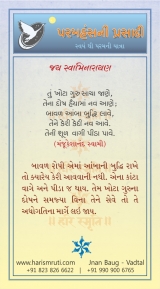 પરમહંસની પ્રસાદી
સ્વયં થી પરમની યાત્રા
જય સ્વામિનારાયણ
તું ખોટા ગુરુ સાચા જાણે,
તેના દોષ હૈયામાં નવ આણે;
બાવળ આંબા બુદ્ધિ લાવે,
તેને કેરી કેદી નવ આવે.
તેની શૂળ વાગી પીડા પાવે.
(મંજુકેશાનંદ સ્વામી)
બાવળ રોપી એમાં આંબાની બુદ્ધિ રાખે
તો ક્યારેય કેરી આવવાની નથી. એના કાંટા
વાગે અને પીડા જ થાય. તેમ ખોટા ગુરુના
દોષને સમજ્યા વિના તેને સેવે તો તે
અધોગતિના માર્ગે લઇ જાય.
www.harismruti.com | Jnan Baug - Vadtal
+91 823 826 6622 | +91 990 900 6765